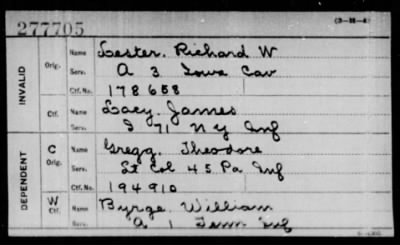 277705
(3-H-4)
INVALID
Orig. Name Lester, Richard W
Serv. A 3 Iowa Cav
Ctf. No. 178658
Ctf. Name Lacy, James
Serv. I 71 N Y Inf
DEPENDENT
C Orig. Name Gregg, Theodore
Serv. Lt Col 45 Pa Inf
Ctf. No. 194910
W Ctf. Name Byrge, William
Serv. A 1 Tenn Inf